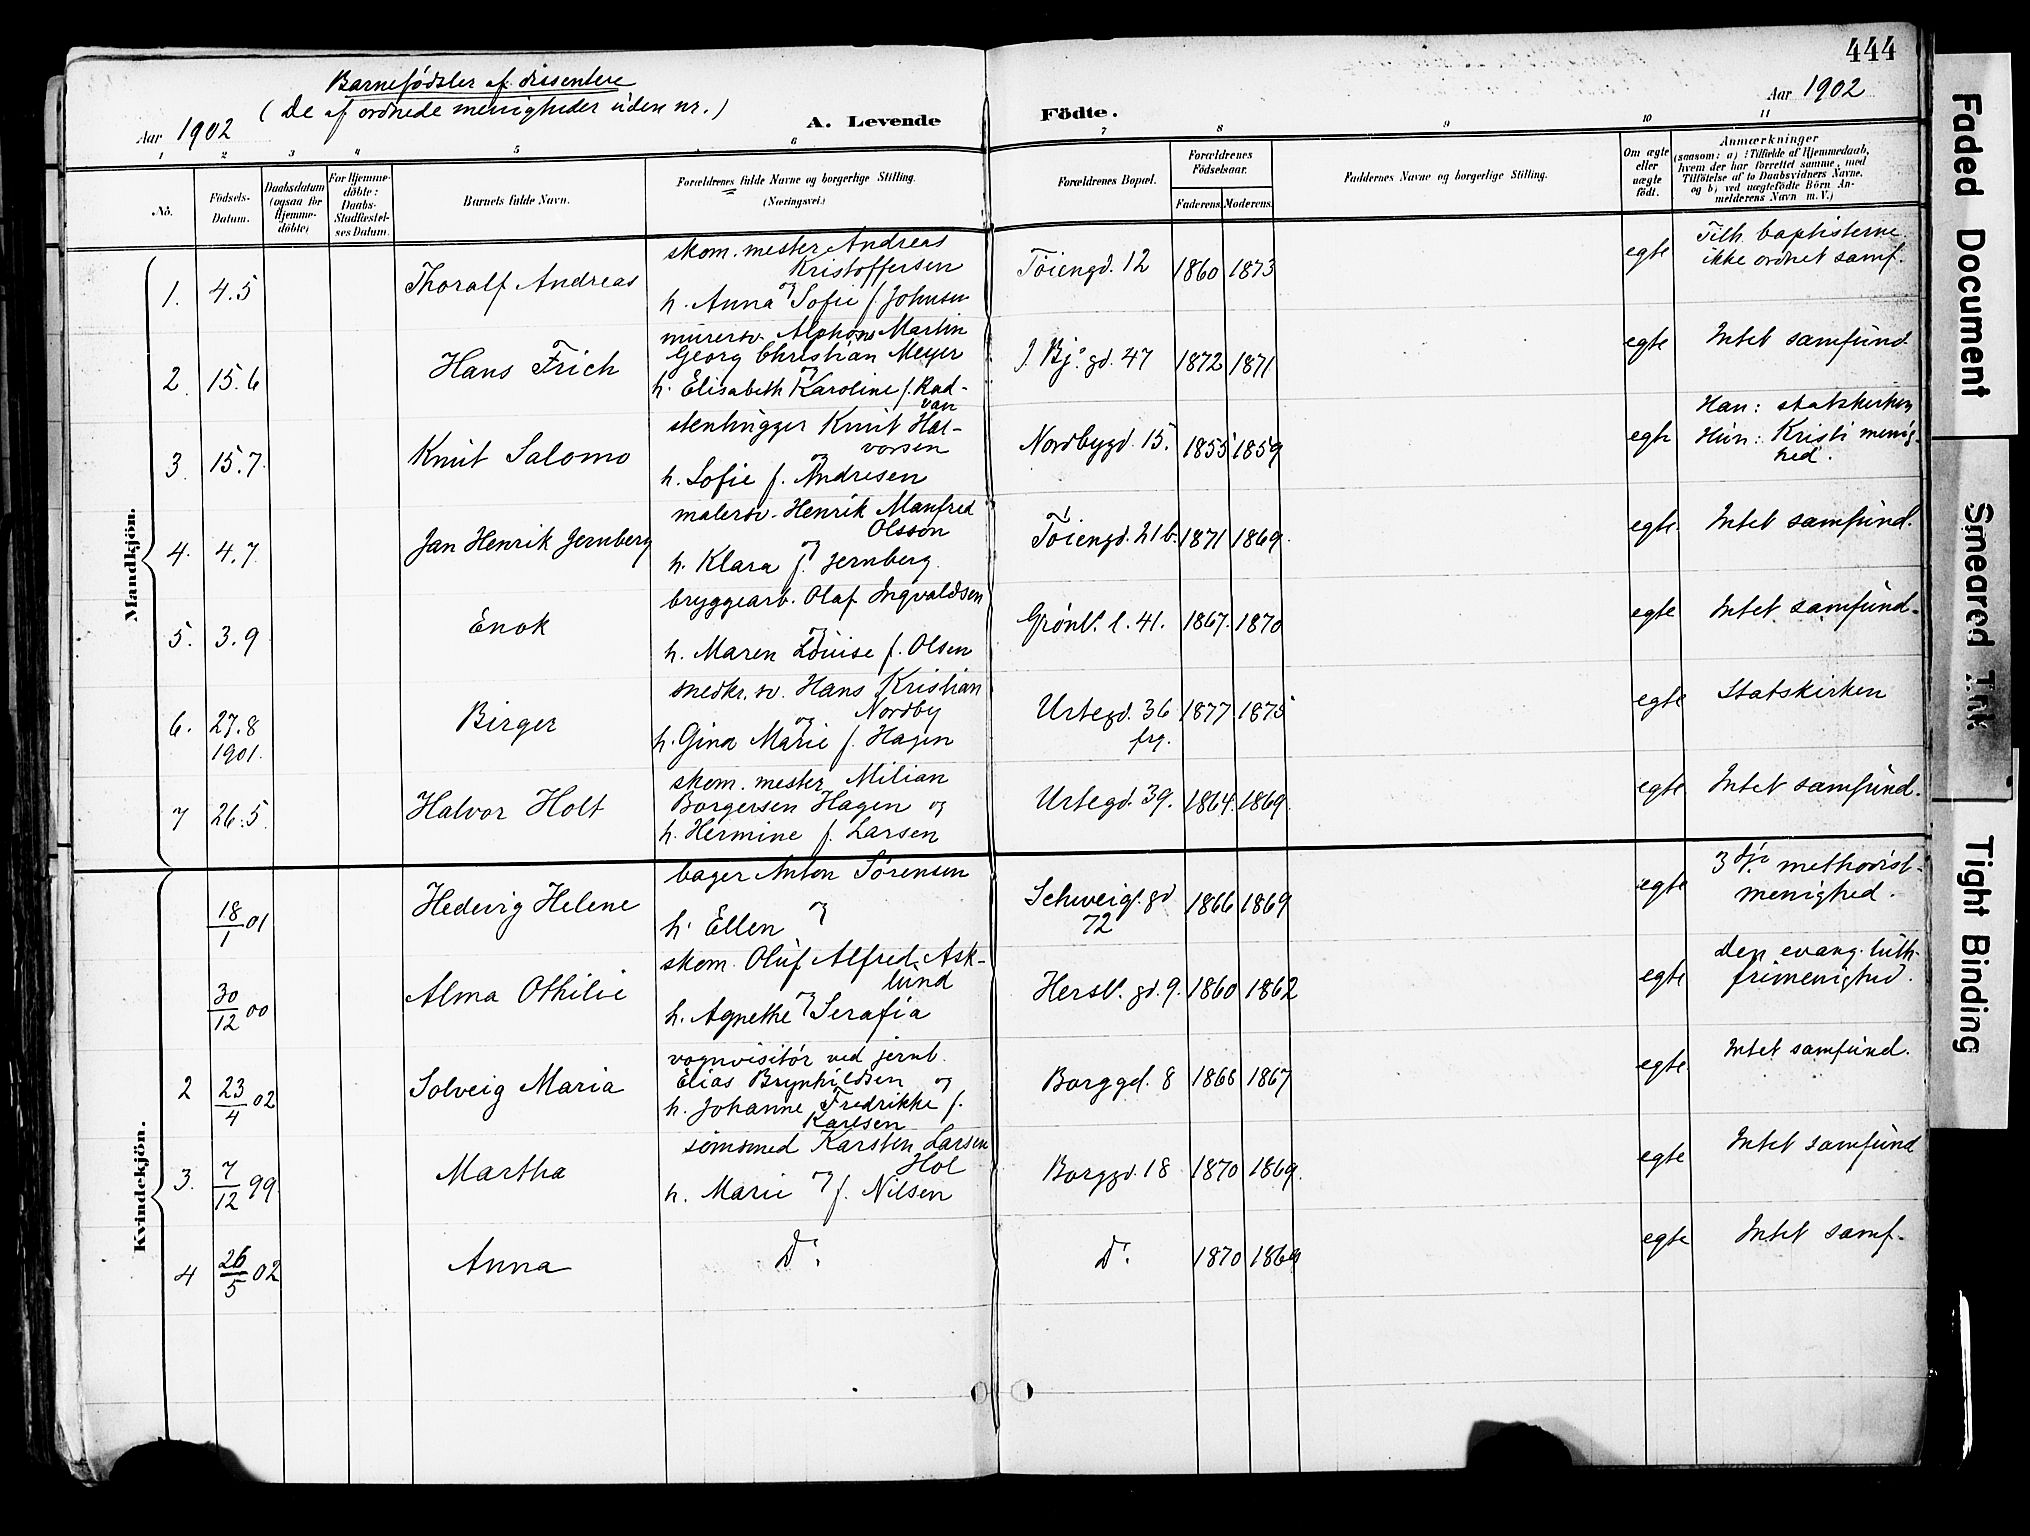 444
Barnefödsler af dissentere
(De af ordnede menigheder uden nr.)
Aar 1902
A. Levende Födte.
Aar 1902
1 2 3 4 5 6 7 8 9 10 11
No.
Födsels-Datum.
Daabsdatum (ogsaa for Hjemme-döbte)
For Hjemme-döbte: Daabs-Stadfæstel-ses Datum.
Barnets fulde Navn.
Forældrenes fulde Navne og borgerlige Stilling.
(Næringsvei.)
Forældrenes Bopæl.
Forældrenes Födselsaar.
Faderens. Moderens.
Faddernes Navne og borgerlige Stilling.
Om ægte eller uægte födt.
Anmærkninger
(saasom: a) i Tilfælde af Hjemmedaab,
hvem der har forrettet samme, med
Tilföielse af to Daabsvidners Navne,
og b) ved uægtefödte Börn An-
melderens Navn m. V.)
Mandkjön.
1. 4.5 Thoralf Andreas
skom. mester Andreas
Kristoffersen
og
h. Anna Sofie f. Johnsen
Töiengd. 12 1860 1873 egte
Tilh. baptisterne
ikke ordnet samf.
2. 15.6 Hans Frich
murersv. Alphons Martin
Georg Christian Meyer
og
h. Elisabeth Karoline f. Rad-
van
J. Bj. gd. 47 1872 1871 egte Intet samfund
3. 15.7. Knut Salomo
stenhugger Knut Hal-
vorsen
og
h. Sofie f. Andresen
Nordbygd. 15. 1855 1859 egte
Han: statskirken
Hun: Kristi menig-
hed.
4. 4.7. Jan Henrik Jernberg
malersv. Henrik Manfred
Olsson
og
h. Klara f. Jernberg.
Töiengd. 21b. 1871 1869. egte Intet samfund.
5. 3.9 Enok
bryggearb. Olaf Ingvaldsen
og
h. Maren Louise f. Olsen
Grönl. l. 41. 1867. 1870 egte Intet samfund.
6. 27.8 1901. Birger
snedkr. sv. Hans Kristian
Nordby
og
h. Gina Marie f. Hagen
Urtegd. 36 1877 1875 egte Statskirken
frg.
7 26.5. Halvor Holt
skom. mester Milian
Borgersen Hagen og
h. Hermine f. Larsen
Urtegd. 39. 1864. 1869. egte Intet samfund.
Kvindekjön.
18/1 01 Hedevig Helene
bager Anton Sörensen
og
h. Ellen
Schweig. gd
72 1866 1869 egte
3dje methodist-
menighed.
30/12 00 Alma Othilie
skom. Oluf Alfred Ask-
lund
og
h. Agnethe Serafia
Hersl. gd. 9. 1860 1862 egte
Den evang. luth.
frimenighed.
2 23/4 02 Solveig Maria
vognvisitör ved jernb.
Elias Brynhildsen og
h. Johanne Fredrikke f.
Karlsen
Borggd. 8 1866 1867 egte Intet samfund.
3. 7/12 99 Martha
sömsmed Karsten Larsen
Hol
og
h. Marie f. Nilsen
Borggd. 18 1870 1869. egte Intet samfund
4 26/5 02 Anna Do. Do. 1870 1869 egte Intet samf.
Faded Document
Smeared Ink
Tight Binding